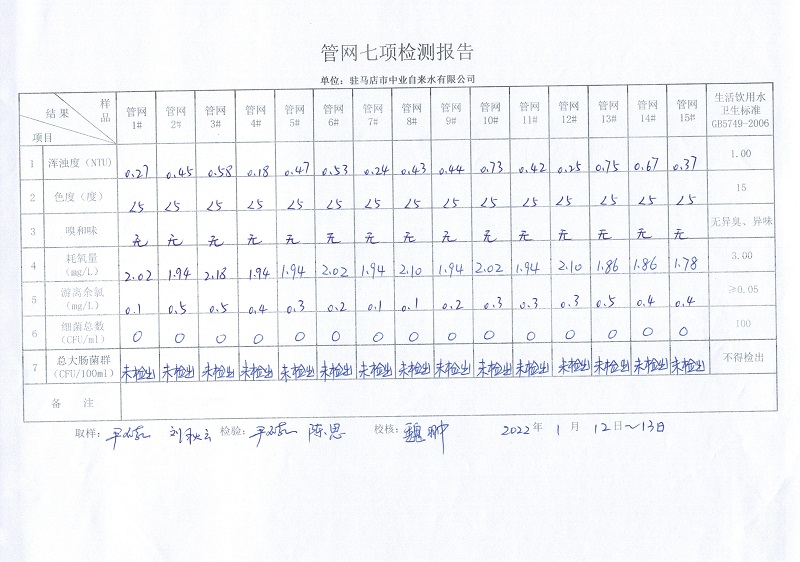 管网七项检测报告
单位：驻马店市中业自来水有限公司
结果 样品 项目 管网1# 管网2# 管网3# 管网4# 管网5# 管网6# 管网7# 管网8# 管网9# 管网10# 管网11# 管网12# 管网13# 管网14# 管网15# 生活饮用水卫生标准GB5749-2006
1 浑浊度（NTU） 0.27 0.45 0.58 0.18 0.47 0.53 0.24 0.43 0.44 0.73 0.42 0.25 0.75 0.67 0.37 1.00
2 色度（度） <5 <5 <5 <5 <5 <5 <5 <5 <5 <5 <5 <5 <5 <5 <5 15
3 嗅和味 无 无 无 无 无 无 无 无 无 无 无 无 无 无 无 无异臭、异味
4 耗氧量（mg/L） 2.02 1.94 2.18 1.94 1.94 2.02 1.94 2.10 1.94 2.02 1.94 2.10 1.86 1.86 1.78 3.00
5 游离余氯（mg/L） 0.1 0.5 0.5 0.4 0.3 0.2 0.1 0.1 0.2 0.3 0.3 0.3 0.5 0.4 0.4 ≥0.05
6 细菌总数（CFU/ml） 0 0 0 0 0 0 0 0 0 0 0 0 0 0 0 100
7 总大肠菌群（CFU/100ml） 未检出 未检出 未检出 未检出 未检出 未检出 未检出 未检出 未检出 未检出 未检出 未检出 未检出 未检出 未检出 不得检出
备 注
取样： 刘秋云 检验： 陈思 校核： 魏翀 2022年 1月 12日~13日